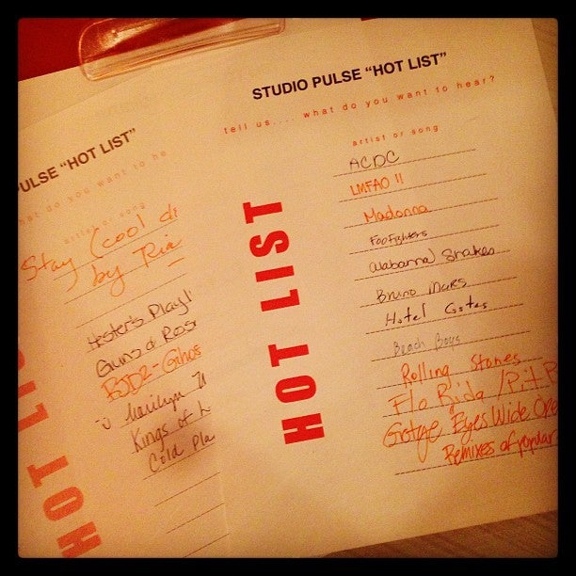 STUDIO PULSE "HOT LIST"
tell us.... what do you want to hear?
artist or song
HOT LIST
ACDC
LMFAO !!
Madonna
Foofighters
Alabama Shakes
Bruno Mars
Hotel Cates
Beach Boys
Rolling Stones
Flo Rida / Pit P
Gotye Eyes Wide Ope
Remixes of popular
ULSE "HOT LIST"
hat do you want to he
artist or song
HOT LIS
Stay (cool di
by Ria
Hester's Playl
Guns & Rose
RJD2 - Ghos
Marilyn M
Kings of L
Cold Pla